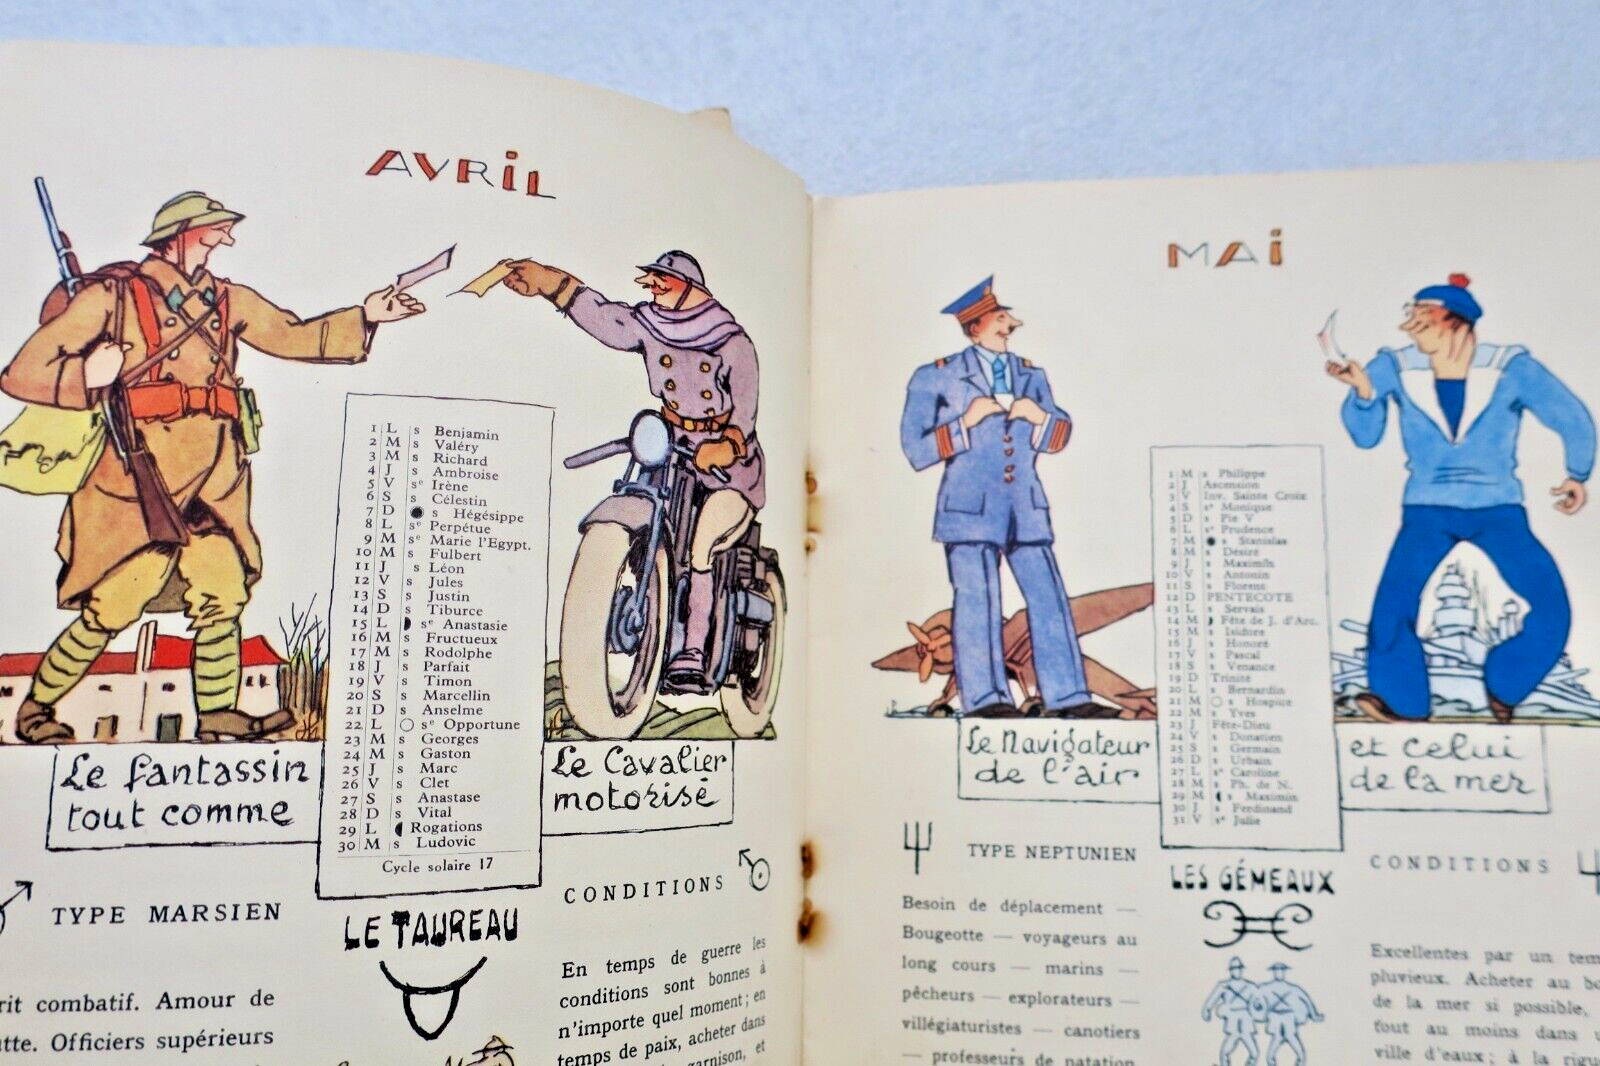 AVRiL
1 L s Benjamin
2 M s Valéry
3 M s Richard
4 J s Ambroise
5 V sᵉ Irène
6 S s Célestin
7 D ● s Hégésippe
8 L sᵉ Perpétue
9 M sᵉ Marie l'Egypt.
10 M s Fulbert
11 J s Léon
12 V s Jules
13 S s Justin
14 D s Tiburce
15 L sᵉ Anastasie
16 M s Fructueux
17 M s Rodolphe
18 J s Parfait
19 V s Timon
20 S s Marcellin
21 D s Anselme
22 L ○ sᵉ Opportune
23 M s Georges
24 M s Gaston
25 J s Marc
26 V s Clet
27 S s Anastase
28 D s Vital
29 L Rogations
30 M s Ludovic
Cycle solaire 17
Le fantassin
tout comme
Le Cavalier
motorisé
TYPE MARSIEN
LE TAUREAU
CONDITIONS
combatif. Amour de
Officiers supérieurs
En temps de guerre les
conditions sont bonnes à
n'importe quel moment ; en
temps de paix, acheter dans
garnison, et
MAi
1 M s Philippe
2 J Ascension
3 V Inv. Sainte Croix
4 S sᵉ Monique
5 D s Pie V
6 L sᵉ Prudence
7 M ● s Stanislas
8 M s Désiré
9 J s Maximin
10 V s Antonin
11 S s Florent
12 D PENTECOTE
13 L s Servais
14 M Fête de J. d'Arc.
15 M s Isidore
16 J s Honoré
17 V s Pascal
18 S s Venance
19 D Trinité
20 L s Bernardin
21 M ○ s Hospice
22 M s Yves
23 J Fête-Dieu
24 V s Donatien
25 S s Germain
26 D s Urbain
27 L sᵉ Caroline
28 M s Ph. de N.
29 M s Maximin
30 J s Ferdinand
31 V sᵉ Julie
Le Navigateur
de l'air
et celui
de la mer
TYPE NEPTUNIEN
LES GÉMEAUX
CONDITIONS
Besoin de déplacement —
Bougeotte — voyageurs au
long cours — marins —
pêcheurs — explorateurs —
villégiaturistes — canotiers
— professeurs de natation
Excellentes par un
pluvieux. Acheter au
de la mer si possible,
tout au moins dans
ville d'eaux ; à la